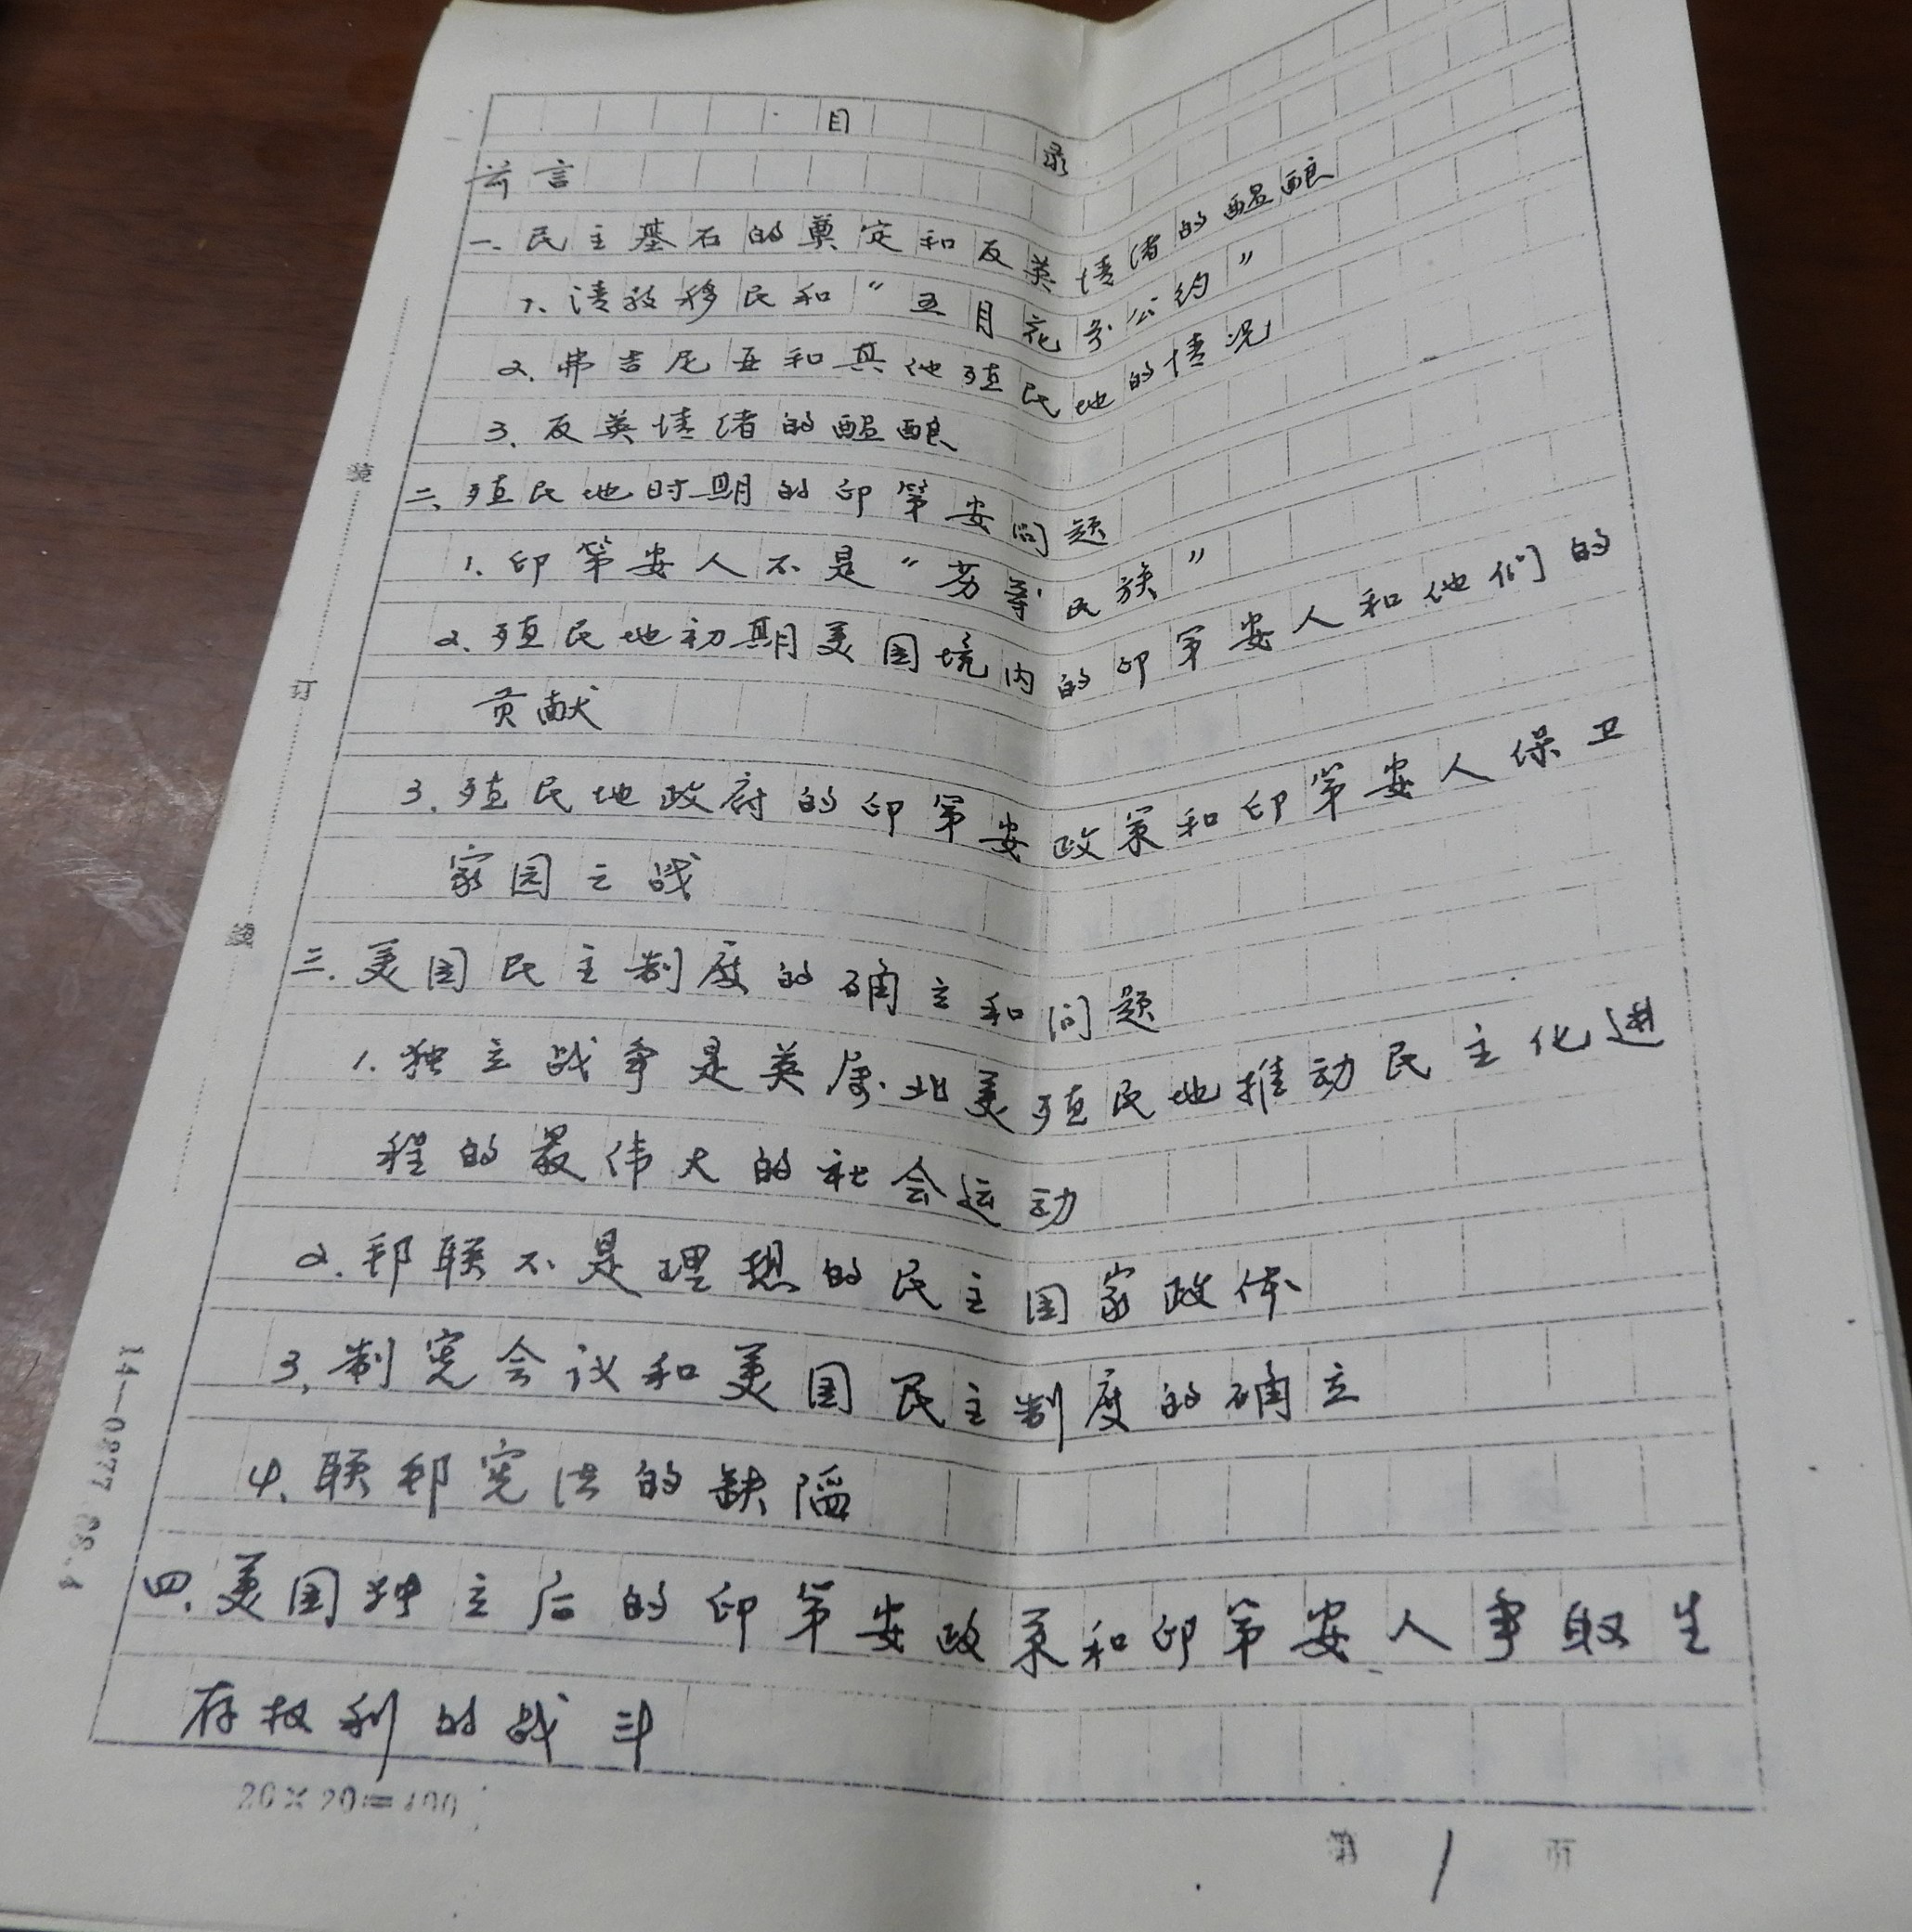 目录
前言
一、民主基石的奠定和反英情绪的酝酿
1、清教移民和“五月花号公约”
2、弗吉尼亚和其他殖民地的情况
3、反英情绪的酝酿
二、殖民地时期的印第安问题
1、印第安人不是“劣等民族”
2、殖民地初期美国境内的印第安人和他们的
贡献
3、殖民地政府的印第安政策和印第安人保卫
家园之战
三、美国民主制度的确立和问题
1、独立战争是英属北美殖民地推动民主化进
程的最伟大的社会运动
2、邦联不是理想的民主国家政体
3、制宪会议和美国民主制度的确立
4、联邦宪法的缺陷
四、美国独立后的印第安政策和印第安人争取生
存权利的战斗
装
订
线
20×20=400
第 1 页